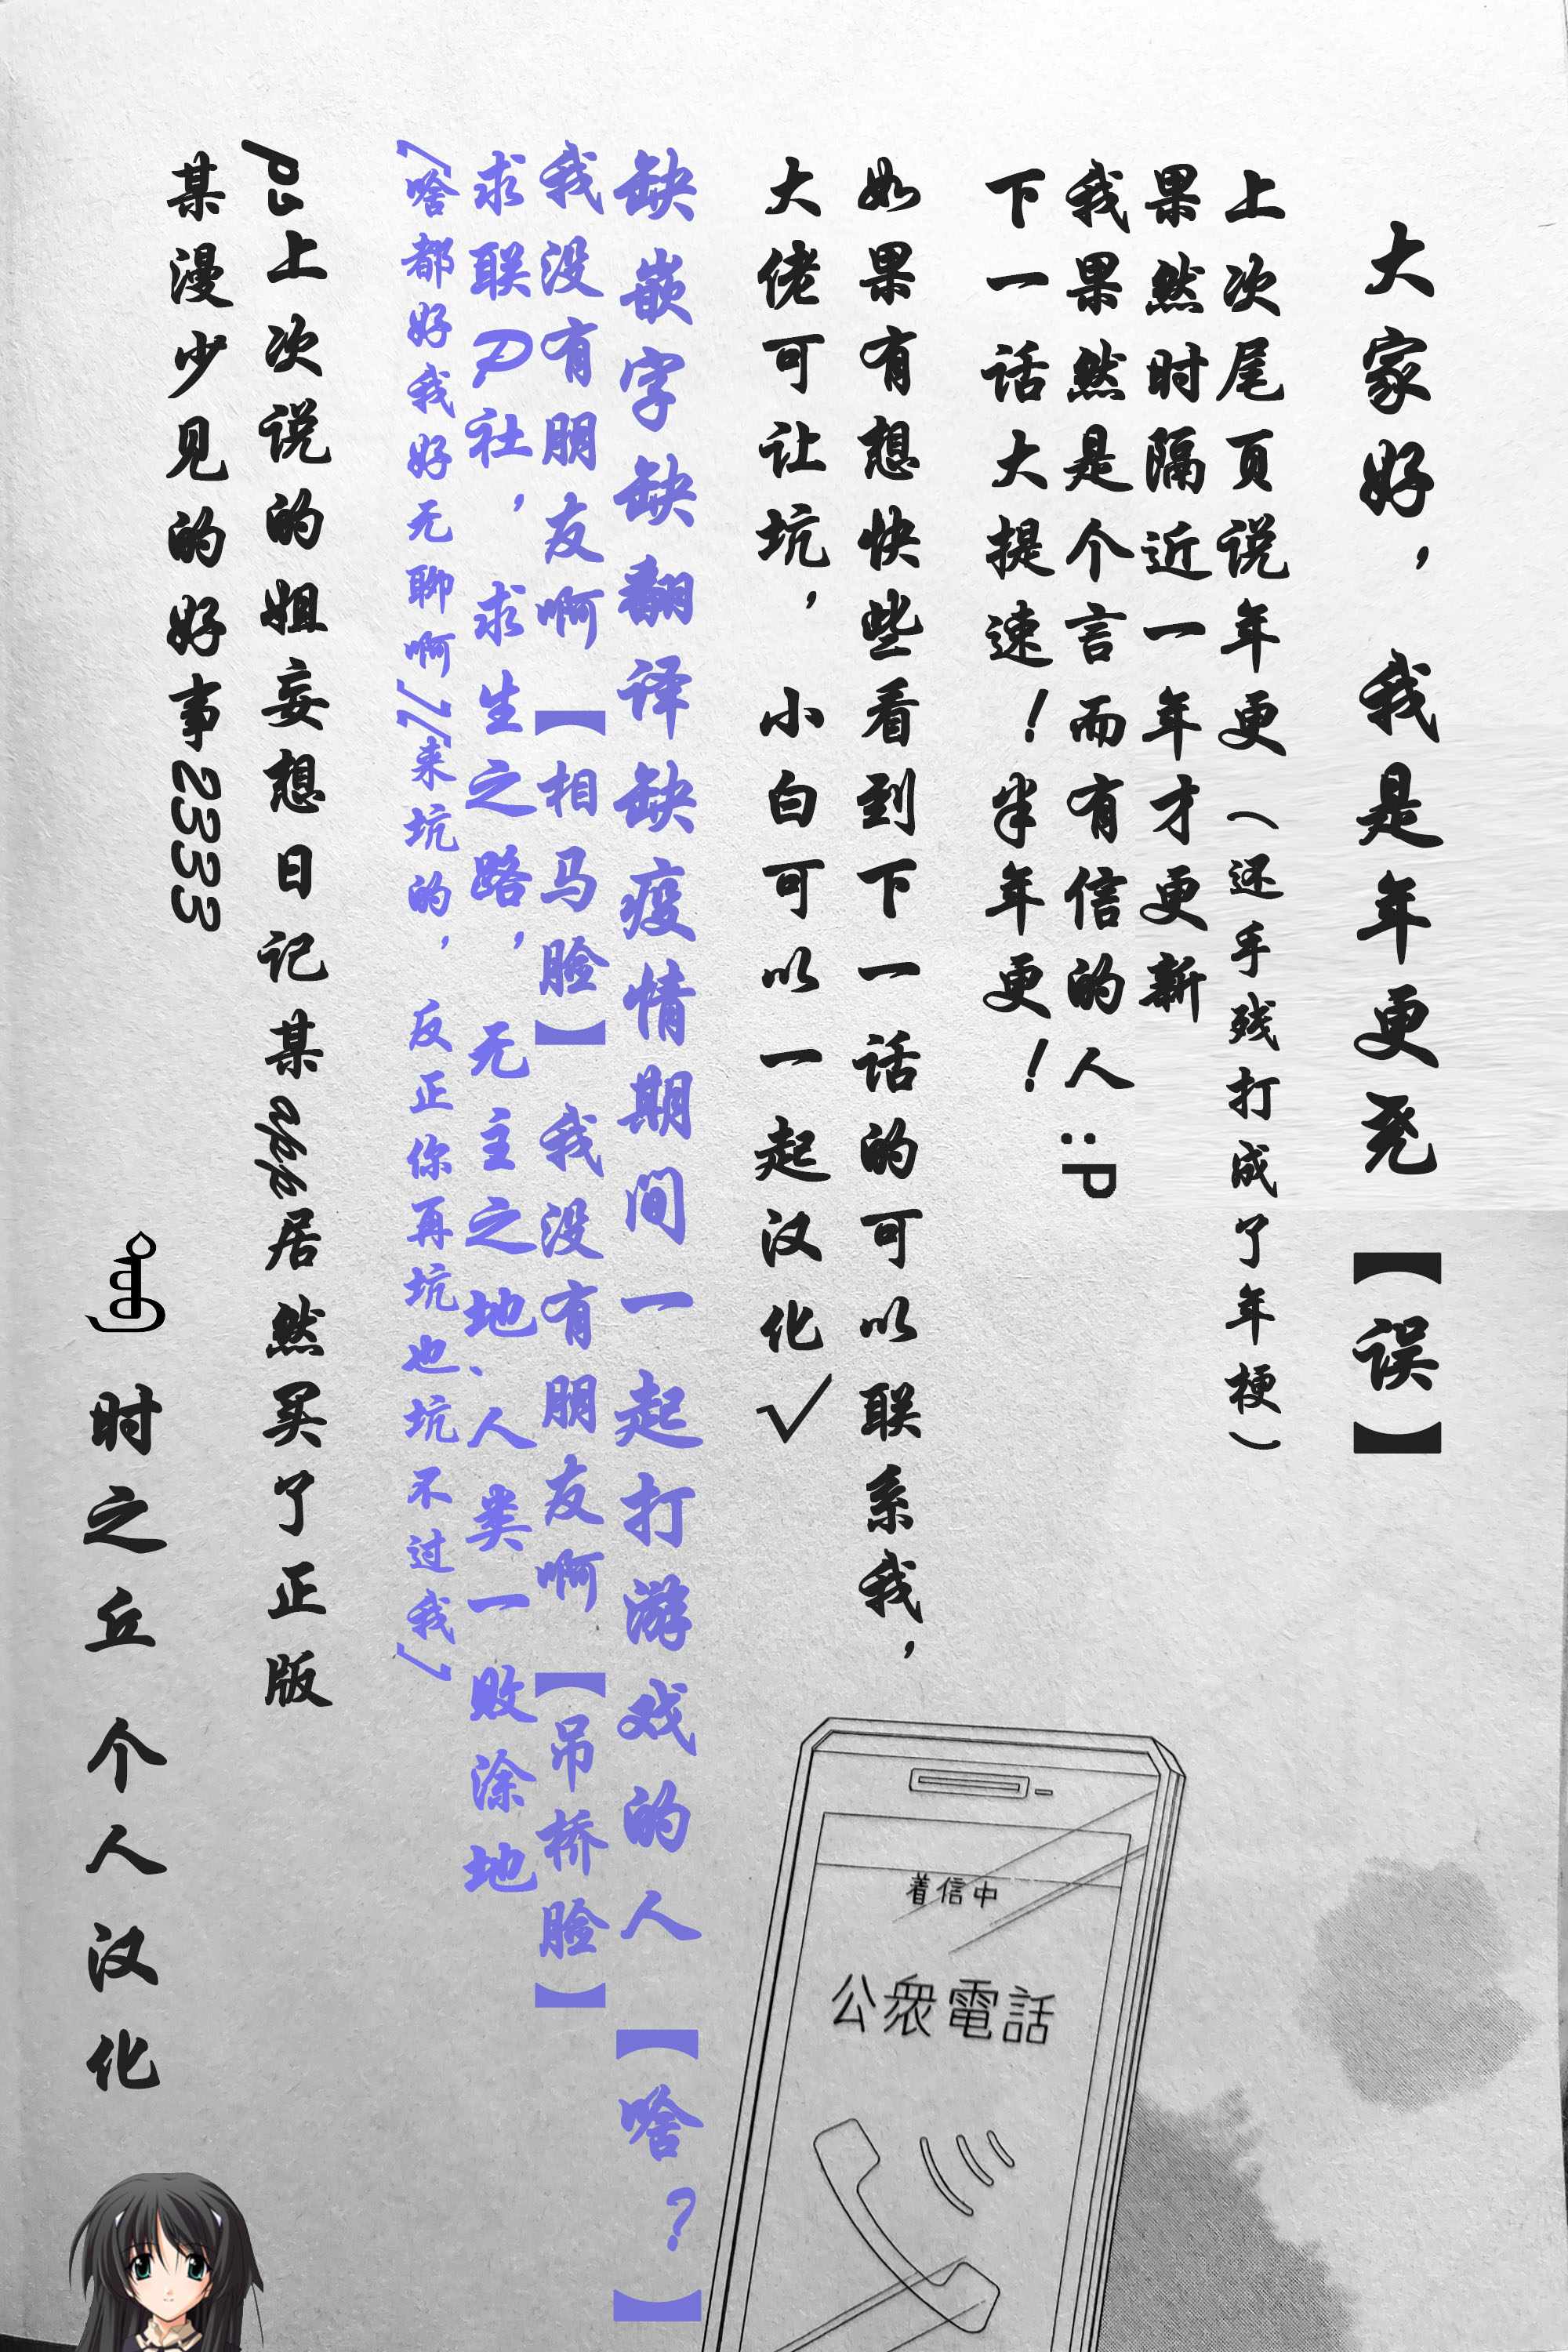 大家好， 我是年更尧 【误】
上次尾页说年更（还手残打成了年梗）
果然时隔近一年才更新
我果然是个言而有信的人:P
下一话大提速！半年更！
如果有想快些看到下一话的可以联系我，
大佬可让坑， 小白可以一起汉化√
缺嵌字缺翻译缺疫情期间一起打游戏的人【啥？】
我没有朋友啊【相马脸】我没有朋友啊【吊桥脸】
求联P社， 求生之路， 无主之地、人类一败涂地
(啥都好我好好无聊啊)(来坑的， 反正你再坑也坑不过我)
ps上次说的姐妄想日记某app居然买了正版
某漫少见的好事2333
时之丘 个人汉化
着信中
公衆電話